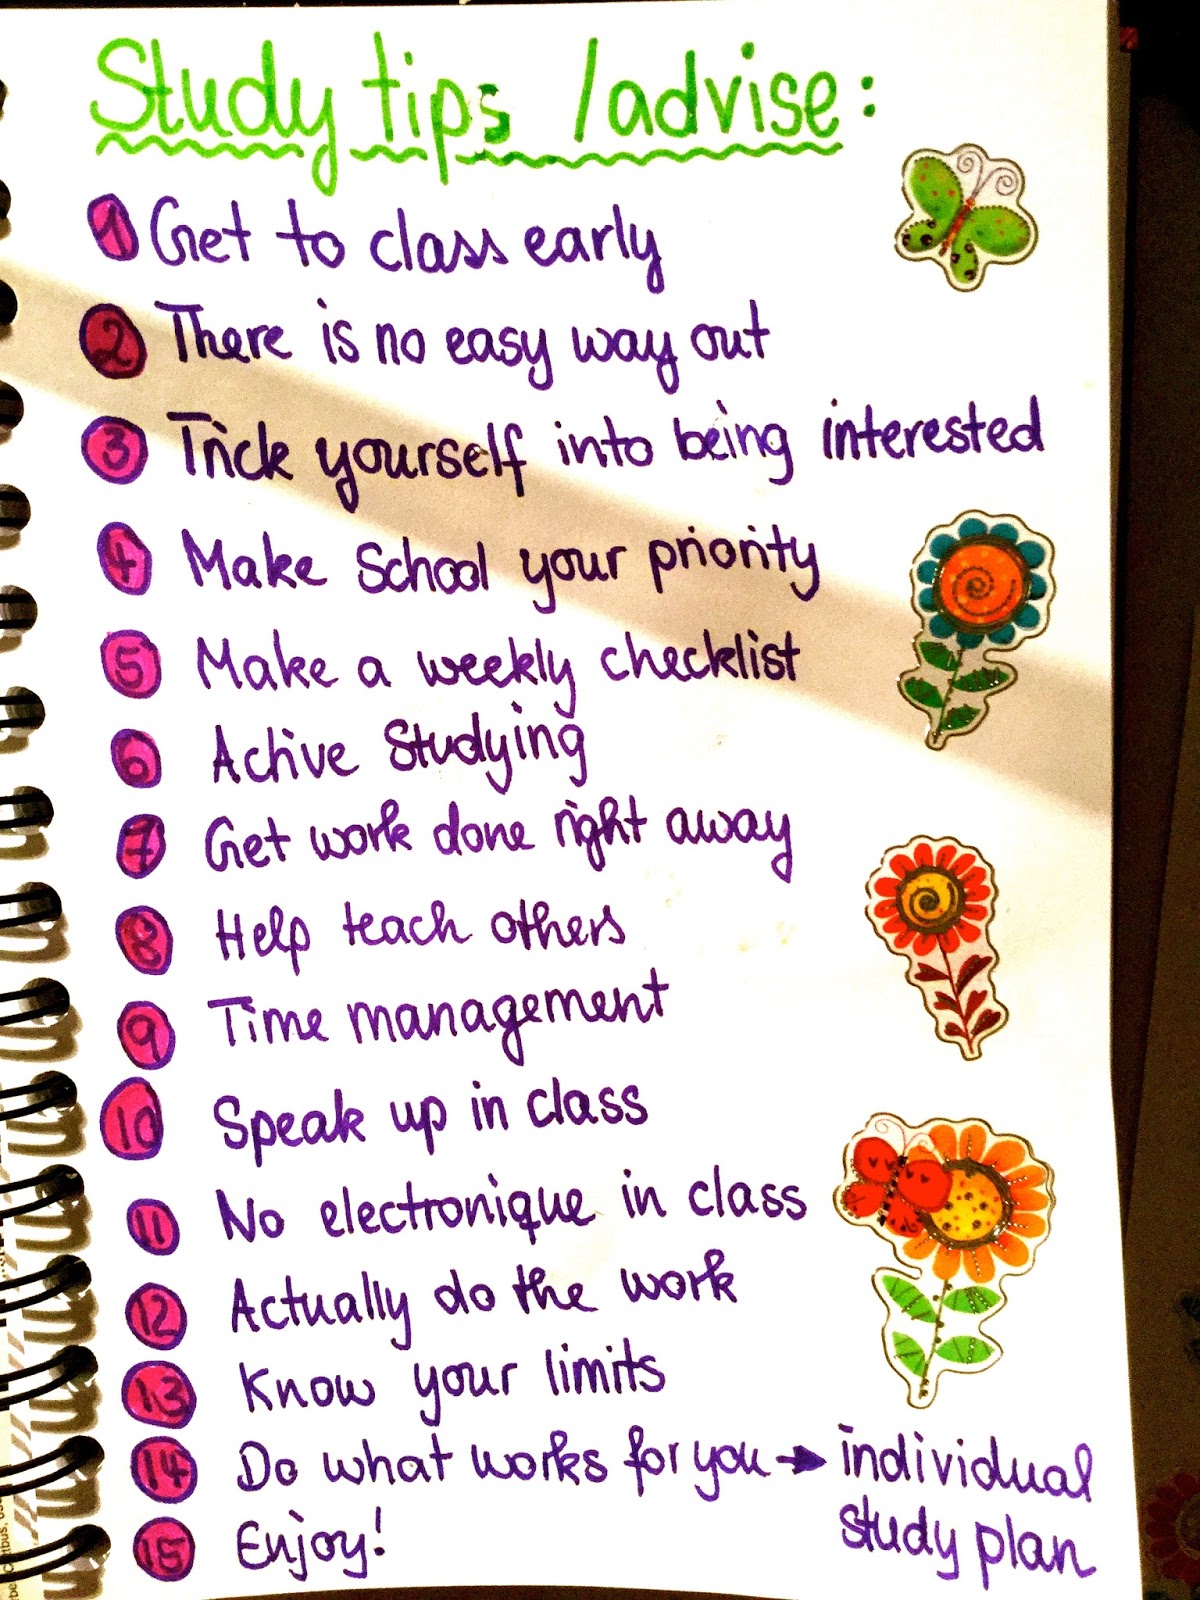 Study tips /advise:
1 Get to class early
2 There is no easy way out
3 Trick yourself into being interested
4 Make School your priority
5 Make a weekly checklist
6 Active Studying
7 Get work done right away
8 Help teach others
9 Time management
10 Speak up in class
11 No electronique in class
12 Actually do the work
13 Know your limits
14 Do what works for you → individual
study plan
15 Enjoy!